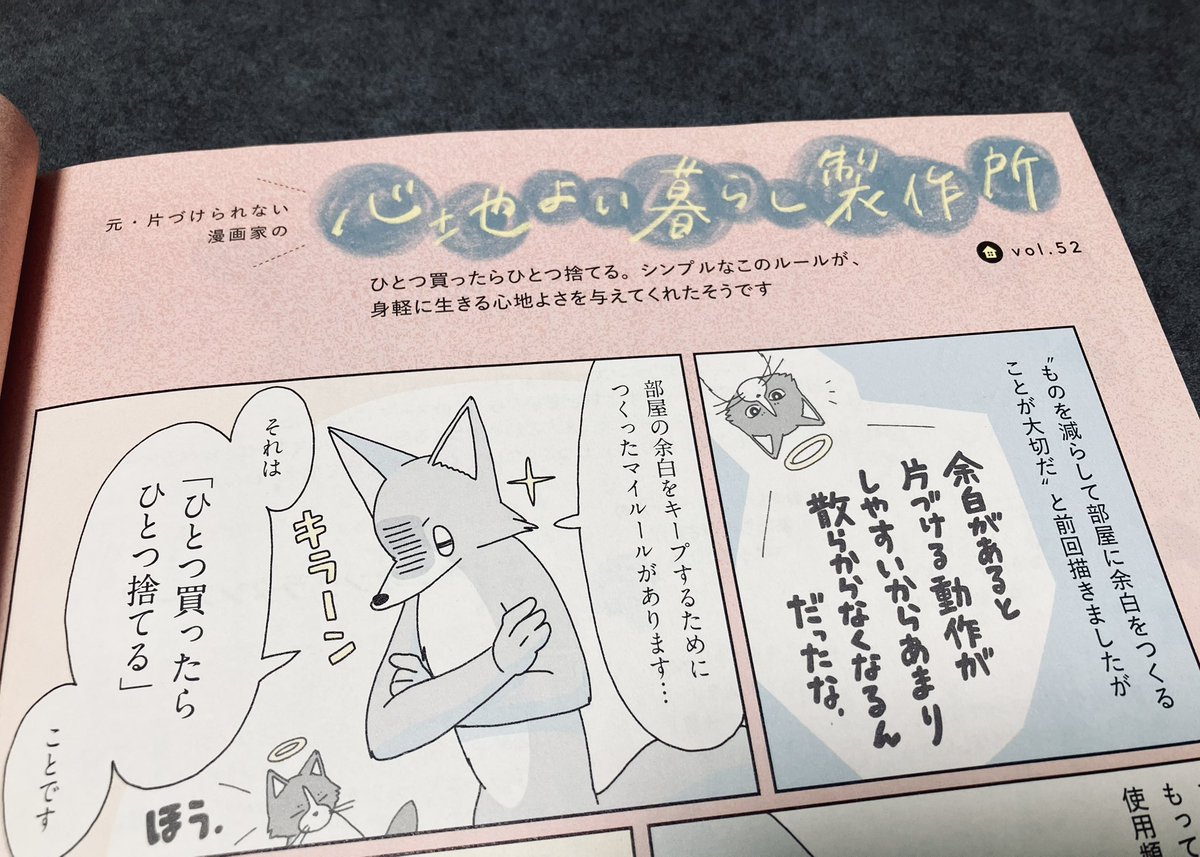 元・片づけられない
漫画家の
心地よい暮らし製作所
vol.52
ひとつ買ったらひとつ捨てる。シンプルなこのルールが、
身軽に生きる心地よさを与えてくれたそうです
〝ものを減らして部屋に余白をつくる
ことが大切だ〟と前回描きましたが
余白があると
片づける動作が
しやすいからあまり
散らからなくなるん
だったな、
部屋の余白をキープするために
つくったマイルールがあります…
キラーン
それは
「ひとつ買ったら
ひとつ捨てる」
ことです
ほう、
もって
使用頻